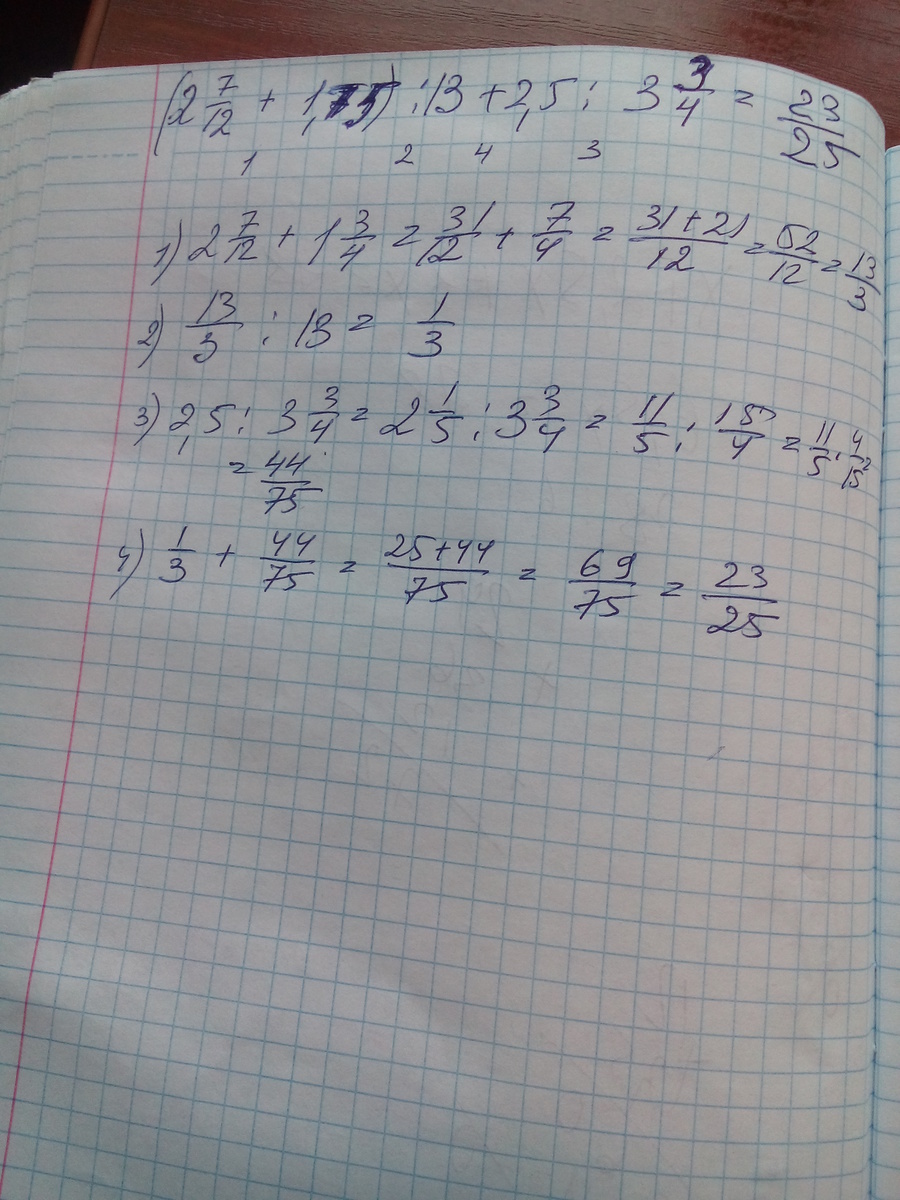 (2 7/12 + 1,75) : 13 + 2,5 : 3 3/4 = 23/25
1 2 4 3
1) 2 7/12 + 1 3/4 = 31/12 + 7/4 = (31+21)/12 = 52/12 = 13/3
2) 13/3 : 13 = 1/3
3) 2,5 : 3 3/4 = 2 1/5 : 3 3/4 = 11/5 : 15/4 = 11/5 · 4/15 =
= 44/75
4) 1/3 + 44/75 = (25+44)/75 = 69/75 = 23/25